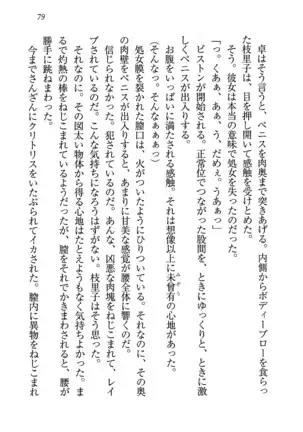 79
卓はそう言うと、ペニスを肉奥まで突きあげる。内側からボディーブローを食らっ
た枝里子は、目を押し開いて感触を受けとめるしかない。
そう。彼女は本当の意味で処女を失ったのだ。
「っ。くあぁ、あぁ、う、だめぇ。うあぁっ」
ピストンが開始される。正常位でつながった股間を、ときにゆっくりと、ときに激
しくペニスが出入りする。
（そんなっ。そんなぁぁぁっ）
お腹をいっぱいに満たされる感触。それは想像以上に未曾有の心地があった。
処女膜を裂かれた膣口は、火がついたようにひりついている。それなのに、その奥
の肉壁をペニスが出入りすると、あまりに甘美な感覚が腰全体に響くのだ。
信じられなかった。犯されているのだ。あんな、凶悪な肉塊をねじこまれて、レイ
プされているのだ。こんな気持ちになろうはずがない。枝里子はそう思った。
それなのに、その図太い物体から得る心地はたとえようもなく気持ちよかった。ま
るで灼熱の棒をねじこまれているようだったが、膣をそれでかきまわされると、腰が
勝手に跳ねまわった。
今までさんざんにクリトリスをいたぶられてイカされた。膣内に異物をねじこまれ